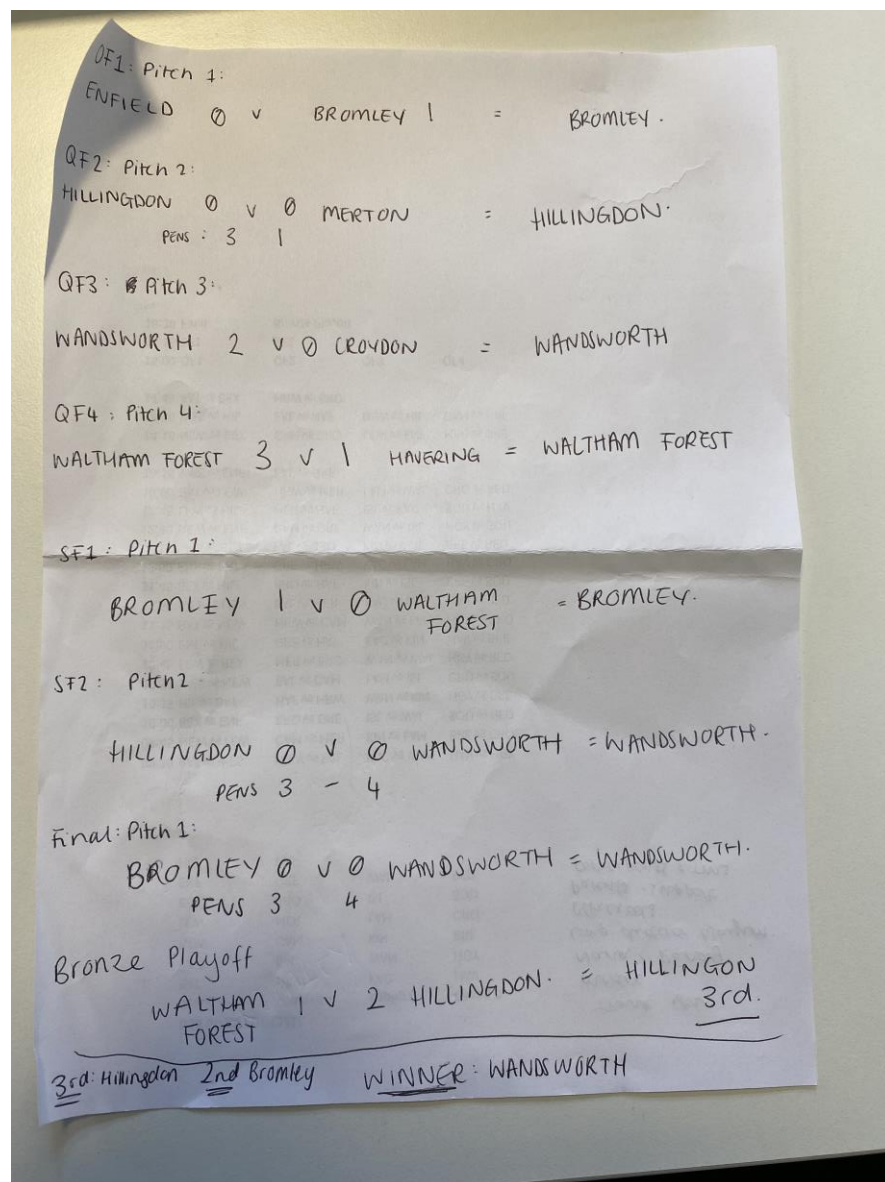 QF1: Pitch 1:
ENFIELD 0 v BROMLEY 1 = BROMLEY.
QF2: Pitch 2:
HILLINGDON 0 v 0 MERTON = HILLINGDON.
PENS: 3 1
QF3: Pitch 3:
WANDSWORTH 2 v 0 CROYDON = WANDSWORTH
QF4: Pitch 4:
WALTHAM FOREST 3 v 1 HAVERING = WALTHAM FOREST
SF1: Pitch 1:
BROMLEY 1 v 0 WALTHAM = BROMLEY.
FOREST
SF2: Pitch 2
HILLINGDON 0 v 0 WANDSWORTH = WANDSWORTH.
PENS 3 - 4
Final: Pitch 1:
BROMLEY 0 v 0 WANDSWORTH = WANDSWORTH.
PENS 3 4
Bronze Playoff
WALTHAM 1 v 2 HILLINGDON. = HILLINGON
FOREST 3rd.
3rd: Hillingdon 2nd Bromley WINNER: WANDSWORTH